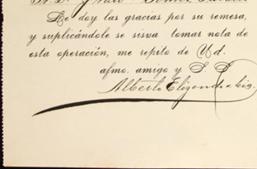 Le doy las gracias por su remesa,
y suplicándole se sirva tomar nota de
esta operación, me repito de Ud.
afmo. amigo y S. S.
Alberto Elizondo